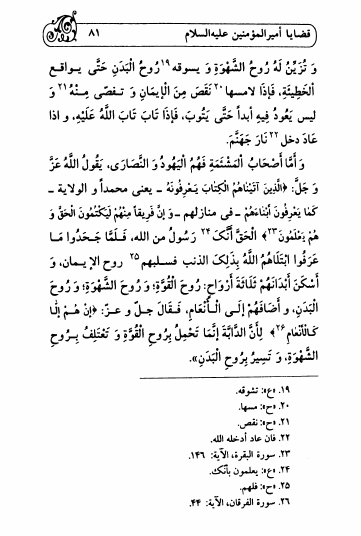 قضايا أميرالمؤمنين عليه‌السلام
٨١
وَ تُزَيِّنُ لَهُ رُوحُ الشَّهْوَةِ وَ يسوقه١٩ رُوحُ الْبَدَنِ حَتَّى يواقع
الْخَطِيئَةِ، فَإِذَا لامسها٢٠ نَقَصَ مِنَ الْإِيمَانِ وَ تـفصّى مِنْهُ٢١ و
ليس يَعُودُ فِيهِ أبداً حَتَّى يَتُوبَ، فَإِذَا تَابَ تَابَ اللَّهُ عَلَيْهِ، و اذا
عَادَ دخل٢٢ نَارَ جَهَنَّمَ.
وَ أَمَّا أَصْحَابُ الْمَشْئَمَةِ فَهُمُ الْيَهُودُ وَ النَّصَارَى، يَقُولُ اللَّهُ عَزَّ
وَ جَلَّ: ﴿الَّذِينَ آتَيْنَاهُمُ الْكِتَابَ يَعْرِفُونَهُ ـ يعنى محمداً و الولاية ـ
كَمَا يَعْرِفُونَ أَبْنَاءَهُمْ ـ فى منازلهم ـ وَ إِنَّ فَرِيقاً مِنْهُمْ لَيَكْتُمُونَ الْحَقَّ وَ
هُمْ يَعْلَمُونَ٢٣﴾ الْحَقَّ أَنَّكَ٢٤ رَسُولُ من الله، فَلَمَّا جَحَدُوا مَا
عَرَفُوا ابْتَلَاهُمُ اللَّهُ بِذَلِكَ الذنب فسلبهم٢٥ روح الإيمان، وَ
أَسْكَنَ أَبْدَانَهُمْ ثَلَاثَةَ أَرْوَاحٍ: رُوحَ الْقُوَّةِ؛ وَ رُوحَ الشَّهْوَةِ؛ وَ رُوحَ
الْبَدَنِ، و أَضَافَهُمْ إِلَى الْأَنْعَامِ، فَقَالَ جلّ و عزّ: ﴿إِنْ هُمْ إِلَّا
كَالْأَنْعَامِ٢٦﴾ لِأَنَّ الدَّابَّةَ إِنَّمَا تَحْمِلُ بِرُوحِ الْقُوَّةِ وَ تَعْتَلِفُ بِرُوحِ
الشَّهْوَةِ، وَ تَسِيرُ بِرُوحِ الْبَدَنِ».
١٩. «ع»: تشوقه.
٢٠. «ح»: مسها.
٢١. «ح»: نقص.
٢٢. فان عاد أدخله الله.
٢٣. سورة البقرة، الآية: ١٤٦.
٢٤. «ع»: يعلمون بأنك.
٢٥. «ح»: فلهم.
٢٦. سورة الفرقان، الآية: ٤٤.